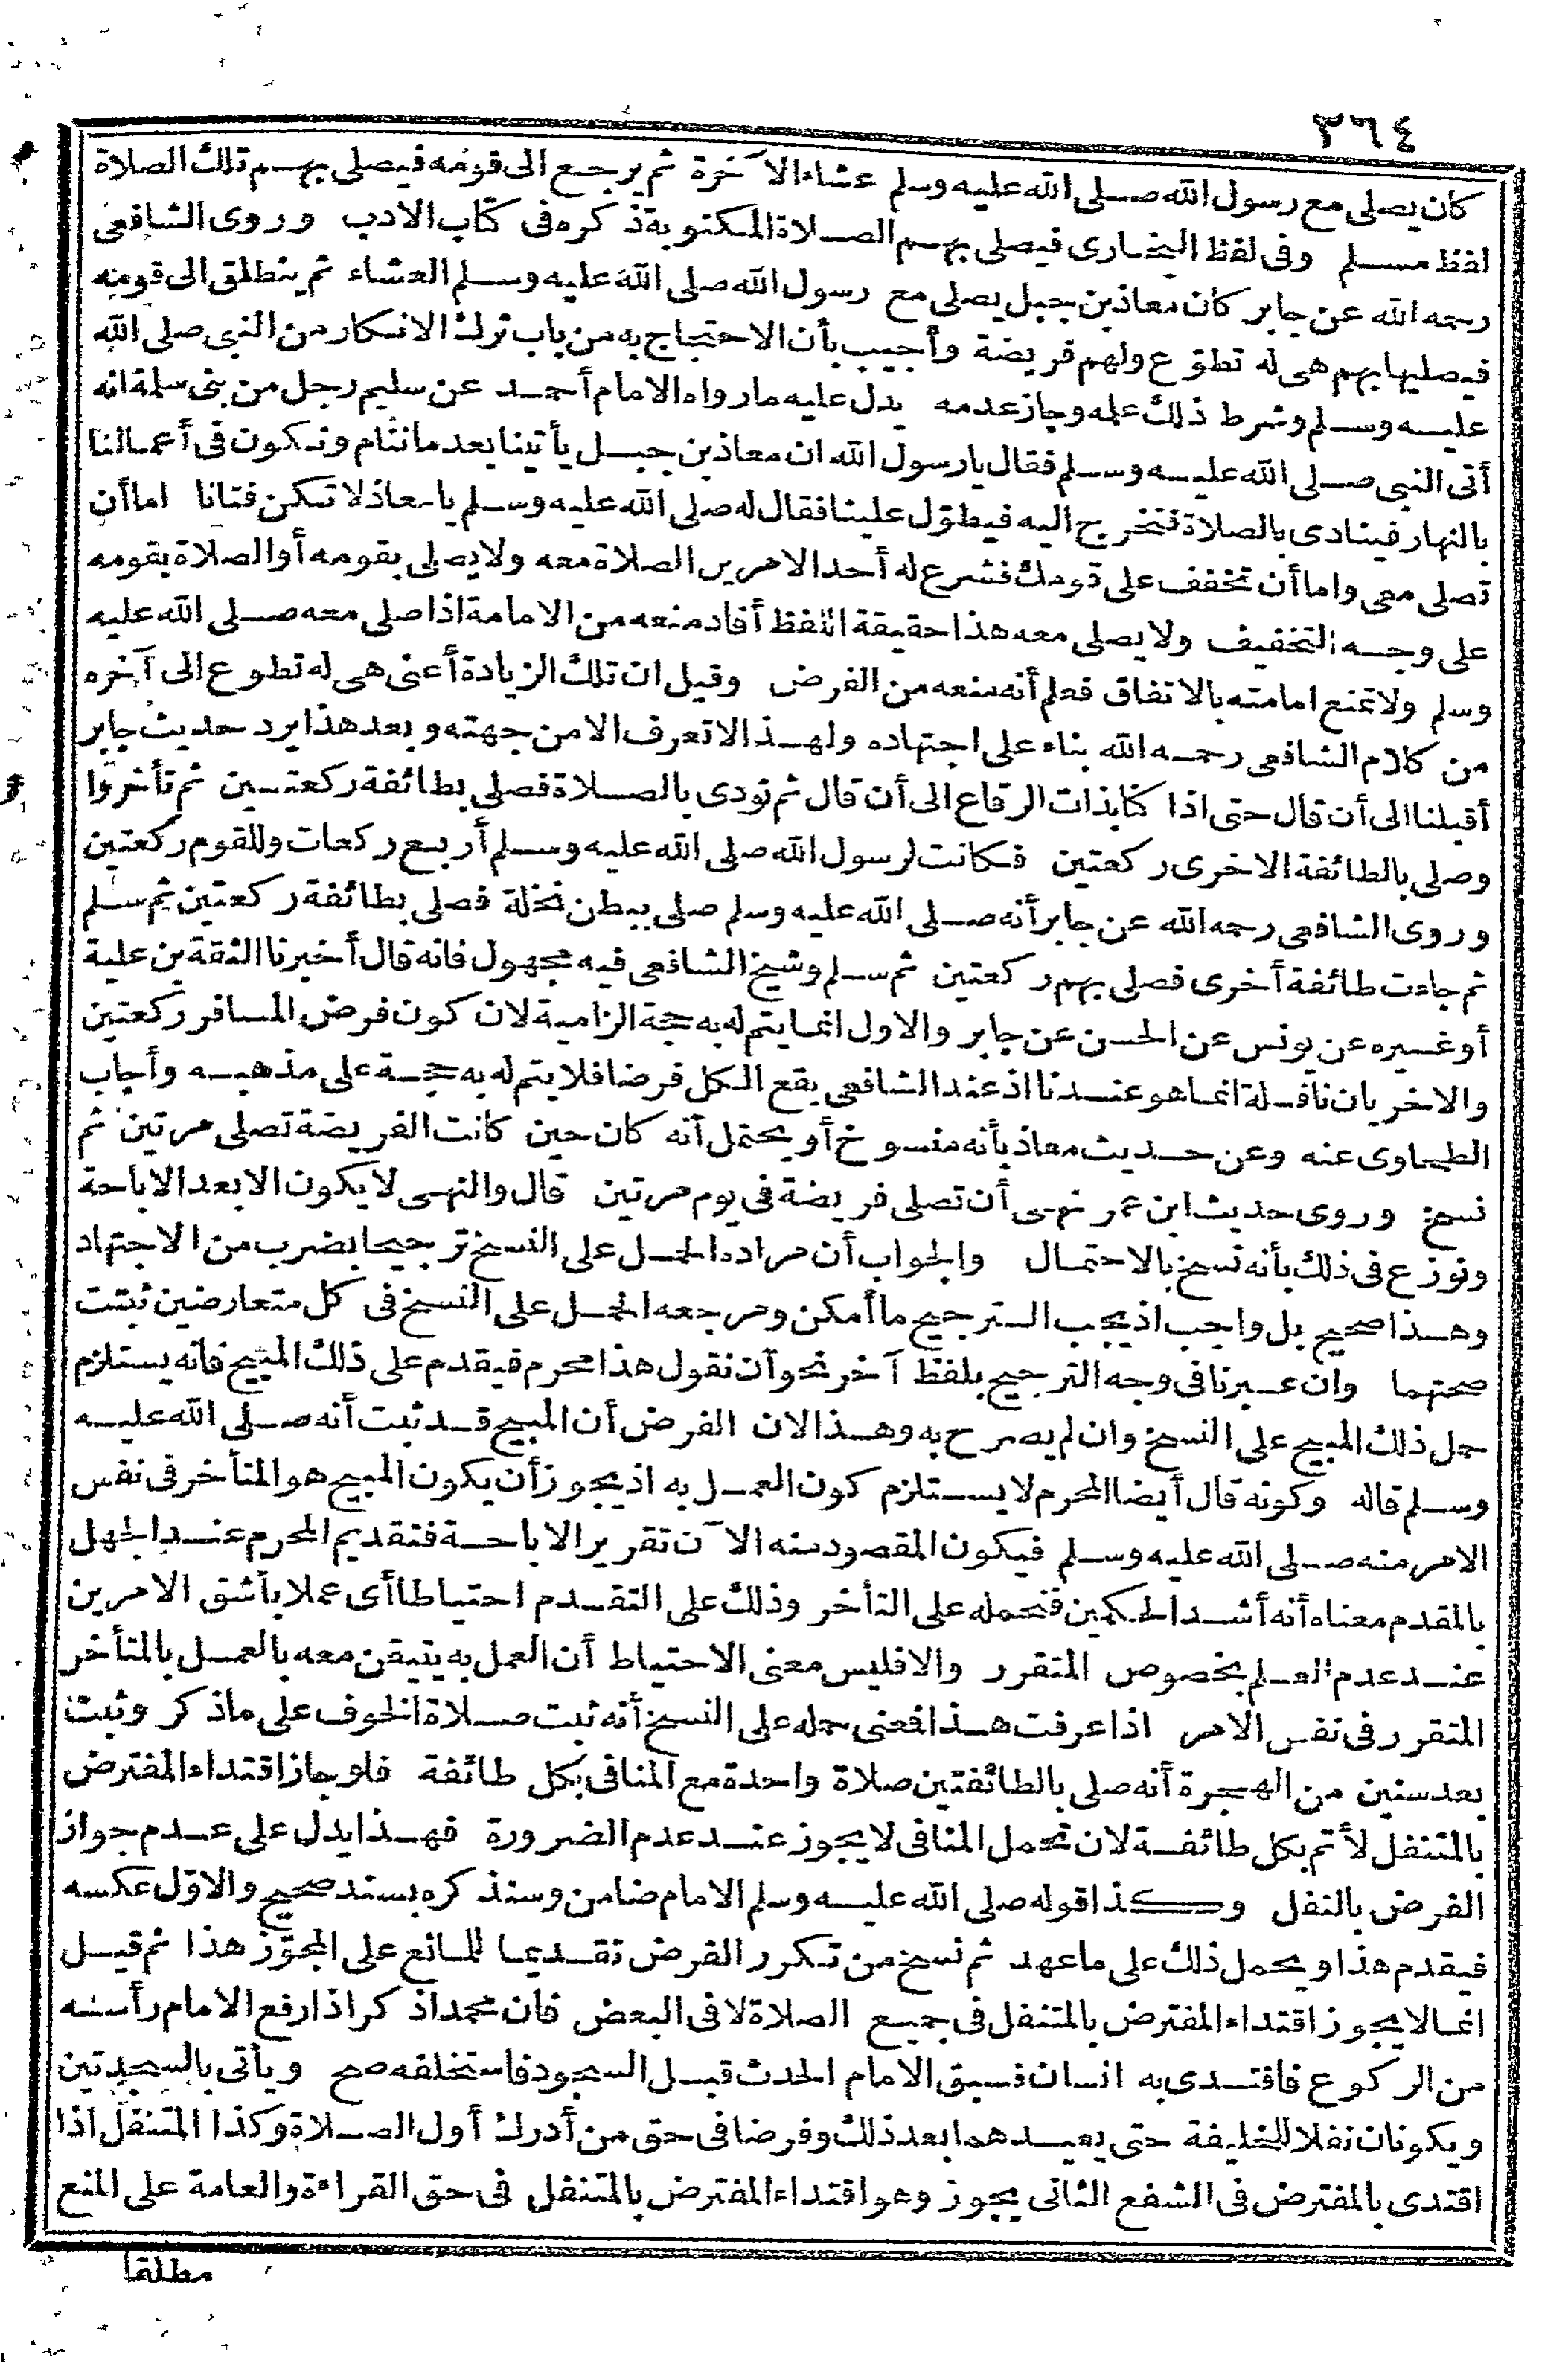 ٣٦٤
كان يصلى مع رسول الله صلى الله عليه وسلم عشاء الآخرة ثم يرجع الى قومه فيصلى بهم تلك الصلاة
لفظ مسلم وفى لفظ البخارى فيصلى بهم الصلاة المكتوبة ذكره فى كتاب الادب وروى الشافعى
رحمه الله عن جابر كان معاذ بن جبل يصلى مع رسول الله صلى الله عليه وسلم العشاء ثم ينطلق الى قومه
فيصليها بهم هى له تطوّع ولهم فريضة وأجيب بأن الاحتجاج به من باب ترك الانكار من النبى صلى الله
عليه وسلم وشرط ذلك علمه وجاز عدمه يدل عليه مارواه الامام أحمد عن سليم رجل من بنى سلمة انه
أتى النبى صلى الله عليه وسلم فقال يارسول الله ان معاذ بن جبل يأتينا بعد ماننام ونكون فى أعمالنا
بالنهار فينادى بالصلاة فنخرج اليه فيطوّل علينا فقال له صلى الله عليه وسلم يامعاذ لاتكن فتانا اما أن
تصلى معى واما أن تخفف على قومك فشرع له أحد الامرين الصلاة معه ولا يصلى بقومه أو الصلاة بقومه
على وجه التخفيف ولا يصلى معه هذا حقيقة اللفظ أفاد منعه من الامامة اذا صلى معه صلى الله عليه
وسلم ولا تمنع امامته بالاتفاق فعلم أنه منعه من الفرض وقيل ان تلك الزيادة أعنى هى له تطوع الى آخره
من كلام الشافعى رحمه الله بناء على اجتهاده ولهذا لا تعرف الا من جهته وبعد هذا يرد حديث جابر
أقبلنا الى أن قال حتى اذا كنا بذات الرقاع الى أن قال ثم نودى بالصلاة فصلى بطائفة ركعتين ثم تأخروا
وصلى بالطائفة الاخرى ركعتين فكانت لرسول الله صلى الله عليه وسلم أربع ركعات وللقوم ركعتين
وروى الشافعى رحمه الله عن جابر أنه صلى الله عليه وسلم صلى ببطن نخلة فصلى بطائفة ركعتين ثم سلم
ثم جاءت طائفة أخرى فصلى بهم ركعتين ثم سلم وشيخ الشافعى فيه مجهول فانه قال أخبرنا الثقة بن علية
أو غيره عن يونس عن الحسن عن جابر والاول انما يتم له به حجة الزامية لان كون فرض المسافر ركعتين
والاخريان نافلة انما هو عندنا اذ عند الشافعى يقع الكل فرضا فلا يتم له به حجة على مذهبه وأجاب
الطحاوى عنه وعن حديث معاذ بأنه منسوخ أو يحتمل أنه كان حين كانت الفريضة تصلى مرتين ثم
نسخ وروى حديث ابن عمر نهى أن تصلى فريضة فى يوم مرتين قال والنهى لا يكون الا بعد الاباحة
ونوزع فى ذلك بأنه نسخ بالاحتمال والجواب أن مراده الحمل على النسخ ترجيحا بضرب من الاجتهاد
وهذا صحيح بل واجب اذ يجب الترجيح ما أمكن ومرجعه الحمل على النسخ فى كل متعارضين ثبتت
صحتهما وان عبرنا فى وجه الترجيح بلفظ آخر نحو أن نقول هذا محرم فيقدم على ذلك المبيح فانه يستلزم
حمل ذلك المبيح على النسخ وان لم يصرح به وهذا لان الفرض أن المبيح قد ثبت أنه صلى الله عليه
وسلم قاله وكونه قال أيضا المحرم لا يستلزم كون العمل به اذ يجوز أن يكون المبيح هو المتأخر فى نفس
الامر منه صلى الله عليه وسلم فيكون المقصود منه الآن تقرير الاباحة فتقديم المحرم عند الجهل
بالمقدم معناه أنه أشد الحكمين فنحمله على التأخر وذلك على التقدم احتياطا أى عملا بأشق الامرين
عند عدم العلم بخصوص المتقرر والا فليس معنى الاحتياط أن العمل به يتيقن معه بالعمل بالمتأخر
المتقرر فى نفس الامر اذا عرفت هذا فعنى حمله على النسخ أنه ثبت صلاة الخوف على ماذكر وثبت
بعد سنين من الهجرة أنه صلى بالطائفتين صلاة واحدة مع المنافى بكل طائفة فلو جاز اقتداء المفترض
بالمتنفل لأتم بكل طائفة لان تحمل المنافى لا يجوز عند عدم الضرورة فهذا يدل على عدم جواز
الفرض بالنفل وكذا قوله صلى الله عليه وسلم الامام ضامن وسنذكره بسند صحيح والاوّل عكسه
فيقدم هذا ويحمل ذلك على ماعهد ثم نسخ من تكرر الفرض تقديما للمانع على المجوّز هذا ثم قيل
انما لا يجوز اقتداء المفترض بالمتنفل فى جميع الصلاة لا فى البعض فان محمدا ذكر اذا رفع الامام رأسه
من الركوع فاقتدى به انسان فسبق الامام الحدث قبل السجود فاستخلفه صح ويأتى بالسجدتين
ويكونان نفلا للخليفة حتى يعيدهما بعد ذلك وفرضا فى حق من أدرك أول الصلاة وكذا المتنفل اذا
اقتدى بالمفترض فى الشفع الثانى يجوز وهو اقتداء المفترض بالمتنفل فى حق القراءة والعامة على المنع
مطلقا